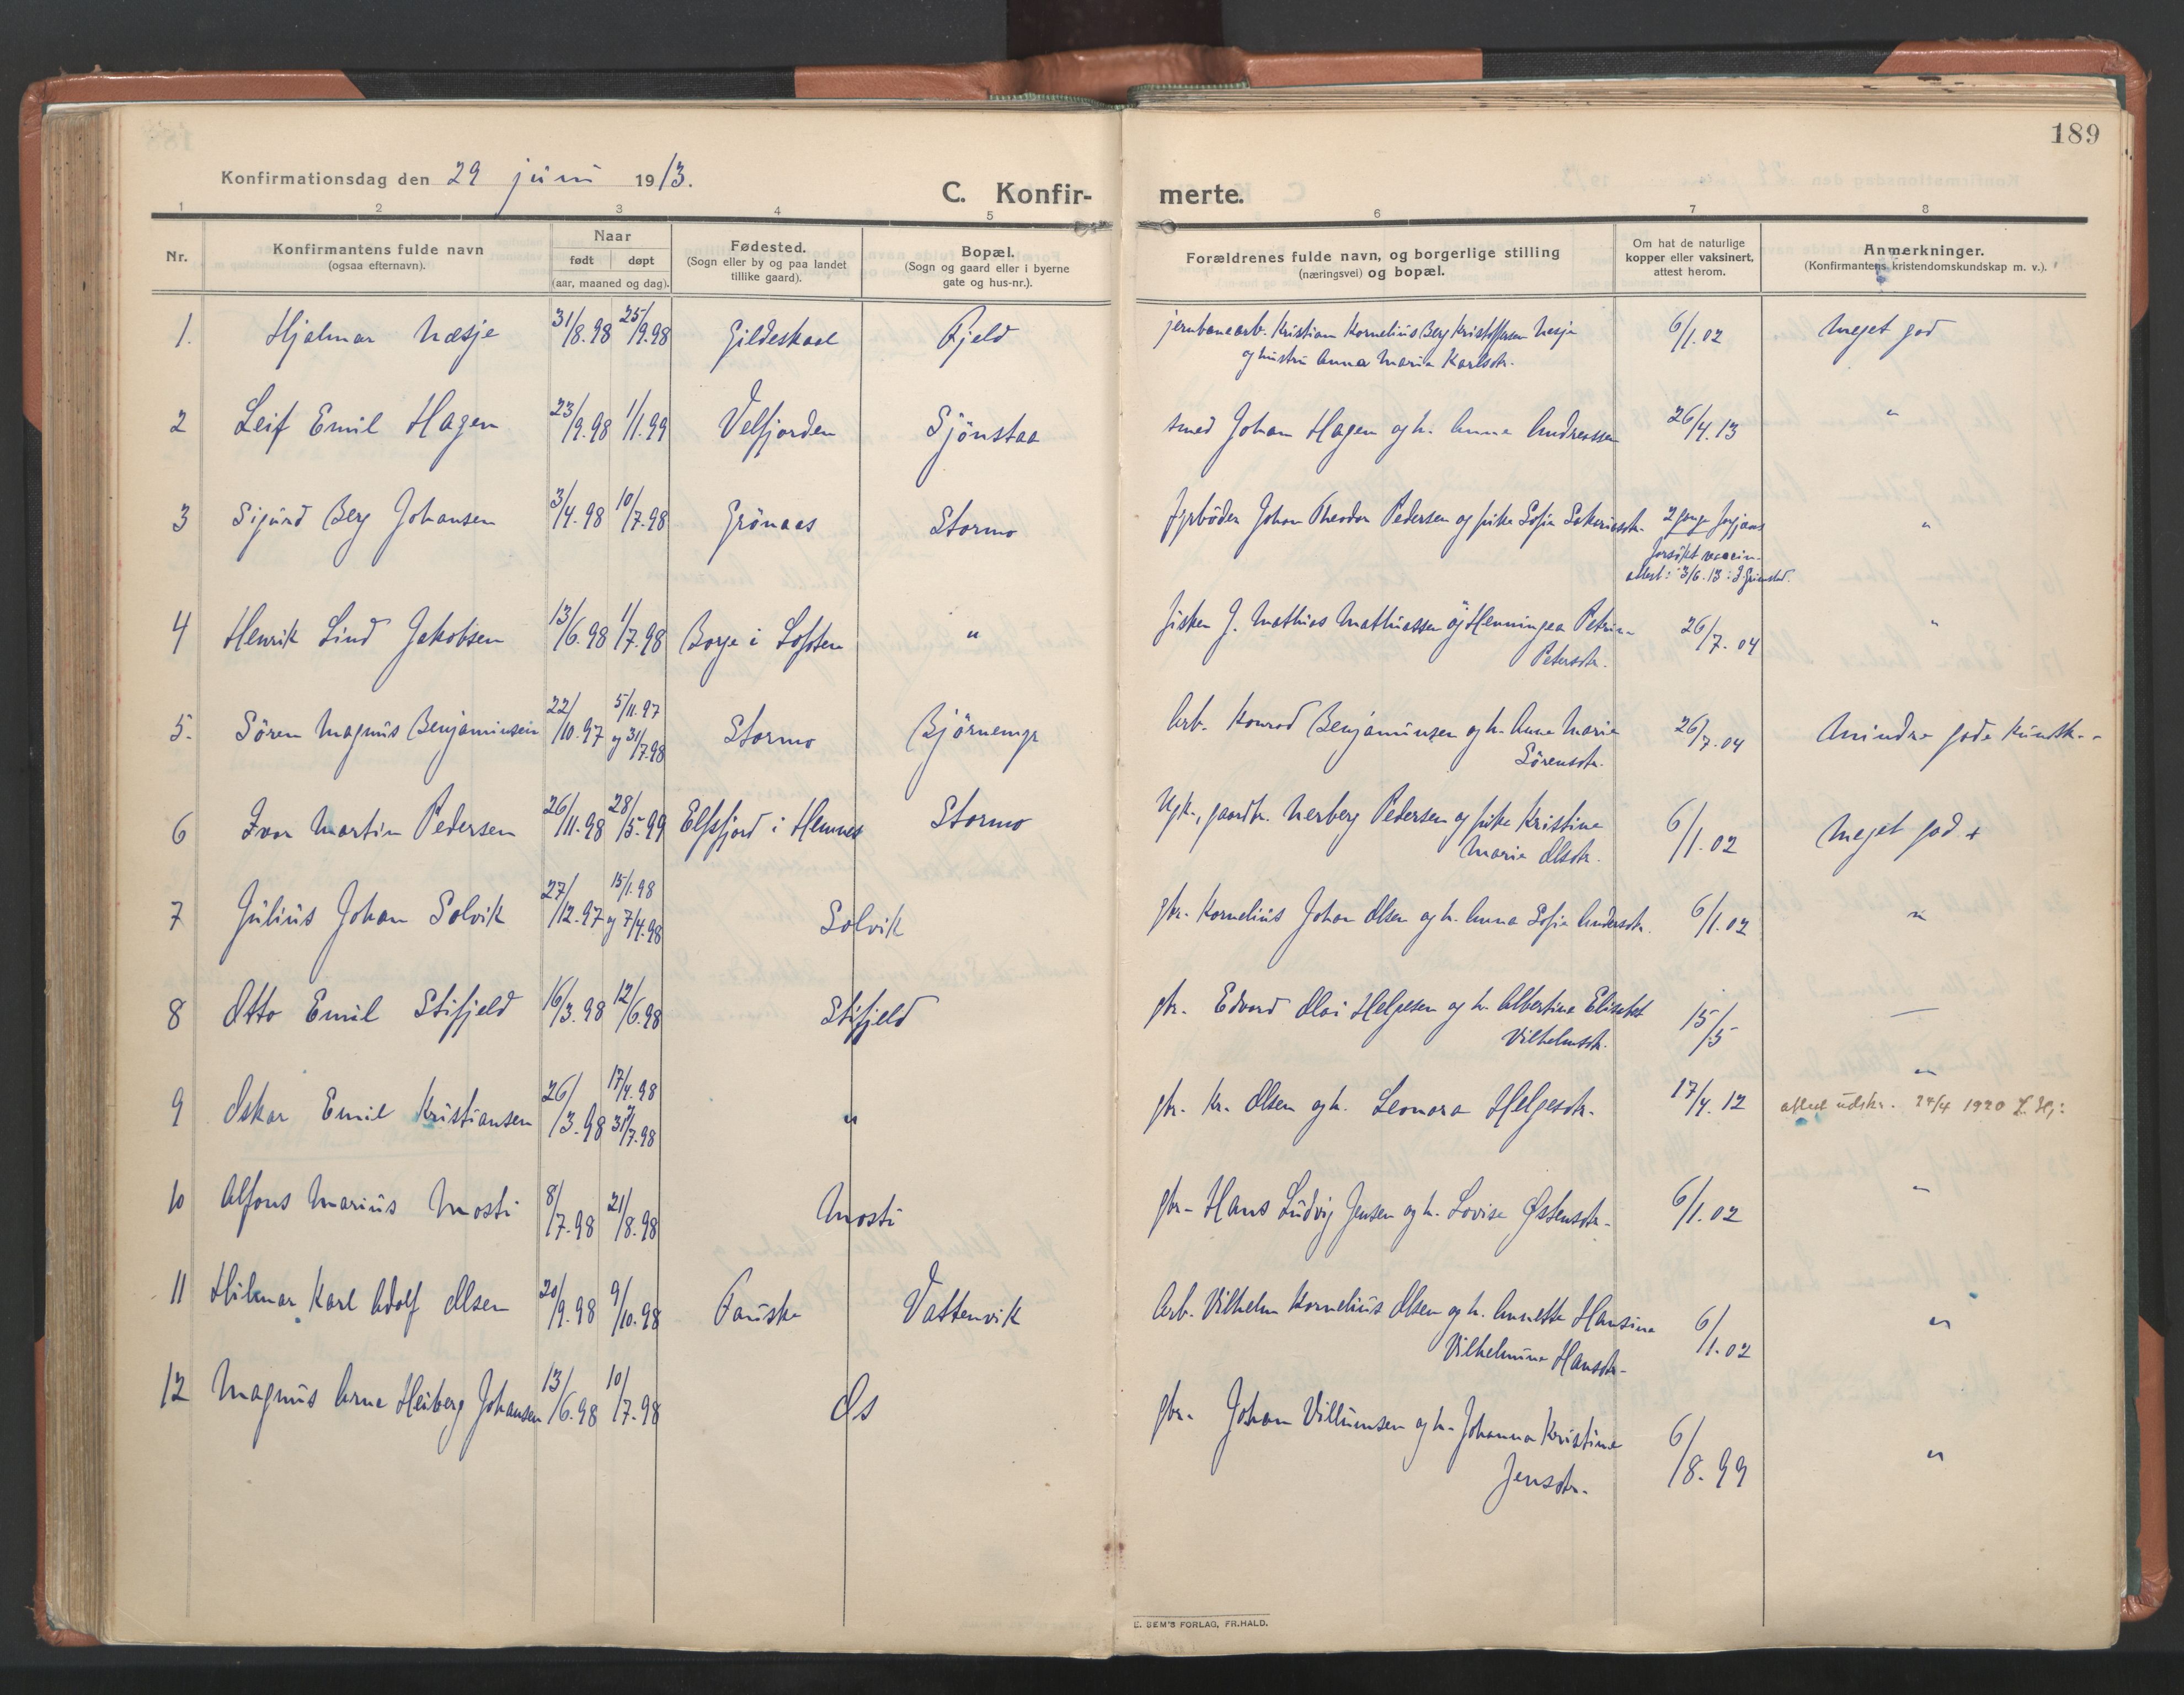 189
Konfirmationsdag den 29 juni 1913.
C. Konfir- merte.
1 2 3 4 5 6 7 8
Nr.
Konfirmantens fulde navn
(ogsaa efternavn).
Naar
født døpt
(aar, maaned og dag).
Fødested.
(Sogn eller by og paa landet
tillike gaard).
Bopæl.
(Sogn og gaard eller i byerne
gate og hus-nr.).
Forældrenes fulde navn, og borgerlige stilling
(næringsvei) og bopæl.
Om hat de naturlige
kopper eller vaksinert,
attest herom.
Anmerkninger.
(Konfirmantens kristendomskundskap m. v.).
1. Hjalmar Næsje 31/8.98 25/9.98 Gildeskaal Fjeld jernbanearb. Kristian Kornelius Berg Kristoffersen Nesje 6/1.02 Meget god
og hustru Anna Maria Karlsdtr.
2 Leif Emil Hagen 23/9.98 1/1.99 Velfjorden Sjönstaa smed Johan Hagen og h. Anna Andreassen 26/4.13 "
3 Sigurd Berg Johansen 3/4.98 10/7.98 Grönaas Stormo fyrböder Johan Theodor Pedersen og pike Sofie Sakariasdtr. 2 gange forgjæves "
forsökt vaccin.
attest: 3/6.13: J Grimstad.
4 Henrik Lind Jakobsen 13/6.98 1/7.98 Borge i Lofoten " fisker J. Mathias Mathiassen og Henningea Petrine 26/7.04 "
Petersdtr.
5. Sören Magnus Benjaminsen 22/10.97 5/11.97 Stormo Björnemyr Arb. Konrad Benjaminsen og h. Anna Marie 26/7.04 Mindre gode kundsk.
og 31/7.98 Sörensdtr.
6 Ivar Martin Pedersen 26/11.98 28/5.99 Elfsfjord i Hemnes Stormo Ugk., gaardbr. Nerberg Pedersen og pike Kristine 6/1.02 Meget god +
Marie Olsdtr.
7 Julius Johan Solvik 27/12.97 15/1.98 og 7/4.98 Solvik gbr. Kornelius Johan Olsen og h. Anna Sofie Andersdtr. 6/1.02 "
8 Otto Emil Stifjeld 16/3.98 12/6.98 Stifjeld gbr. Edvard Olai Helgesen og h. Albertine Elisabet 15/5 —
Vilhelmsdtr.
9 Oskar Emil Kristiansen 26/3.98 17/4.98 " gbr. Kr. Olsen og h. Leonora Helgesdtr. 17/4.12 "
og 31/7.98 attest udskr. 24/4 1920
10 Alfons Marius Mosti 8/7.98 21/8.98 Mosti gbr. Hans Ludvig Jensen og h. Lovise Østensdtr. 6/1.02 "
11 Hilmar Karl Adolf Olsen 20/9.98 9/10.98 Fauske Vattenvik Arb. Vilhelm Kornelius Olsen og h. Annette Hansine 6/1.02 "
Vilhelmine Hansdtr.
12 Magnus Arne Heiberg Johansen 13/6.98 10/7.98 Os gbr. Johan Villumsen og h. Johanna Kristine 6/8.99 "
Jensdtr.
E. SEM'S FORLAG, FR.HALD.